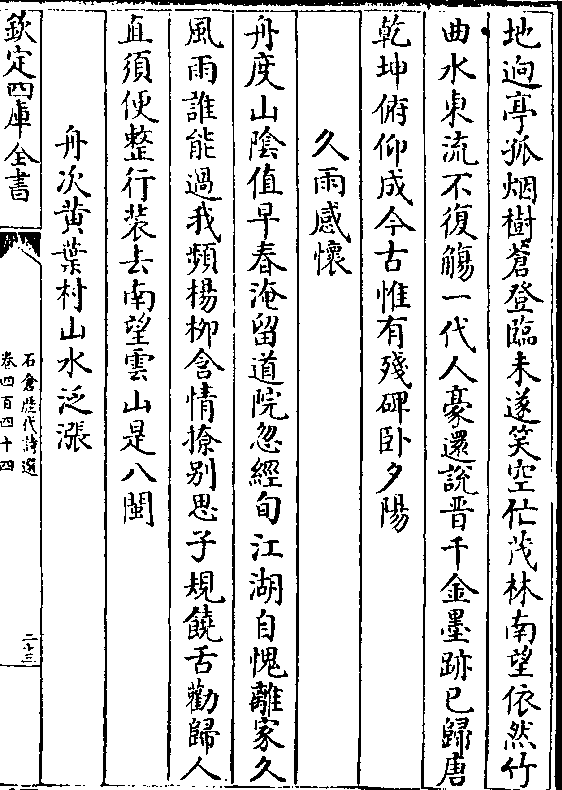 地逈亭孤烟樹蒼登臨未遂笑空忙茂林南望依然竹
曲水東流不復觴一代人豪還說晉千金墨跡已歸唐
乾坤俯仰成今古惟有殘碑卧夕陽
久雨感懷
舟度山陰值早春淹留道院忽經旬江湖自愧離家久
風雨誰能過我頻楊柳含情撩别思子規饒舌勸歸人
直須便整行装去南望雲山是八閩
舟次黄葉村山水泛漲
欽定四庫全書
石倉歷代詩選
卷四百四十四
二十三